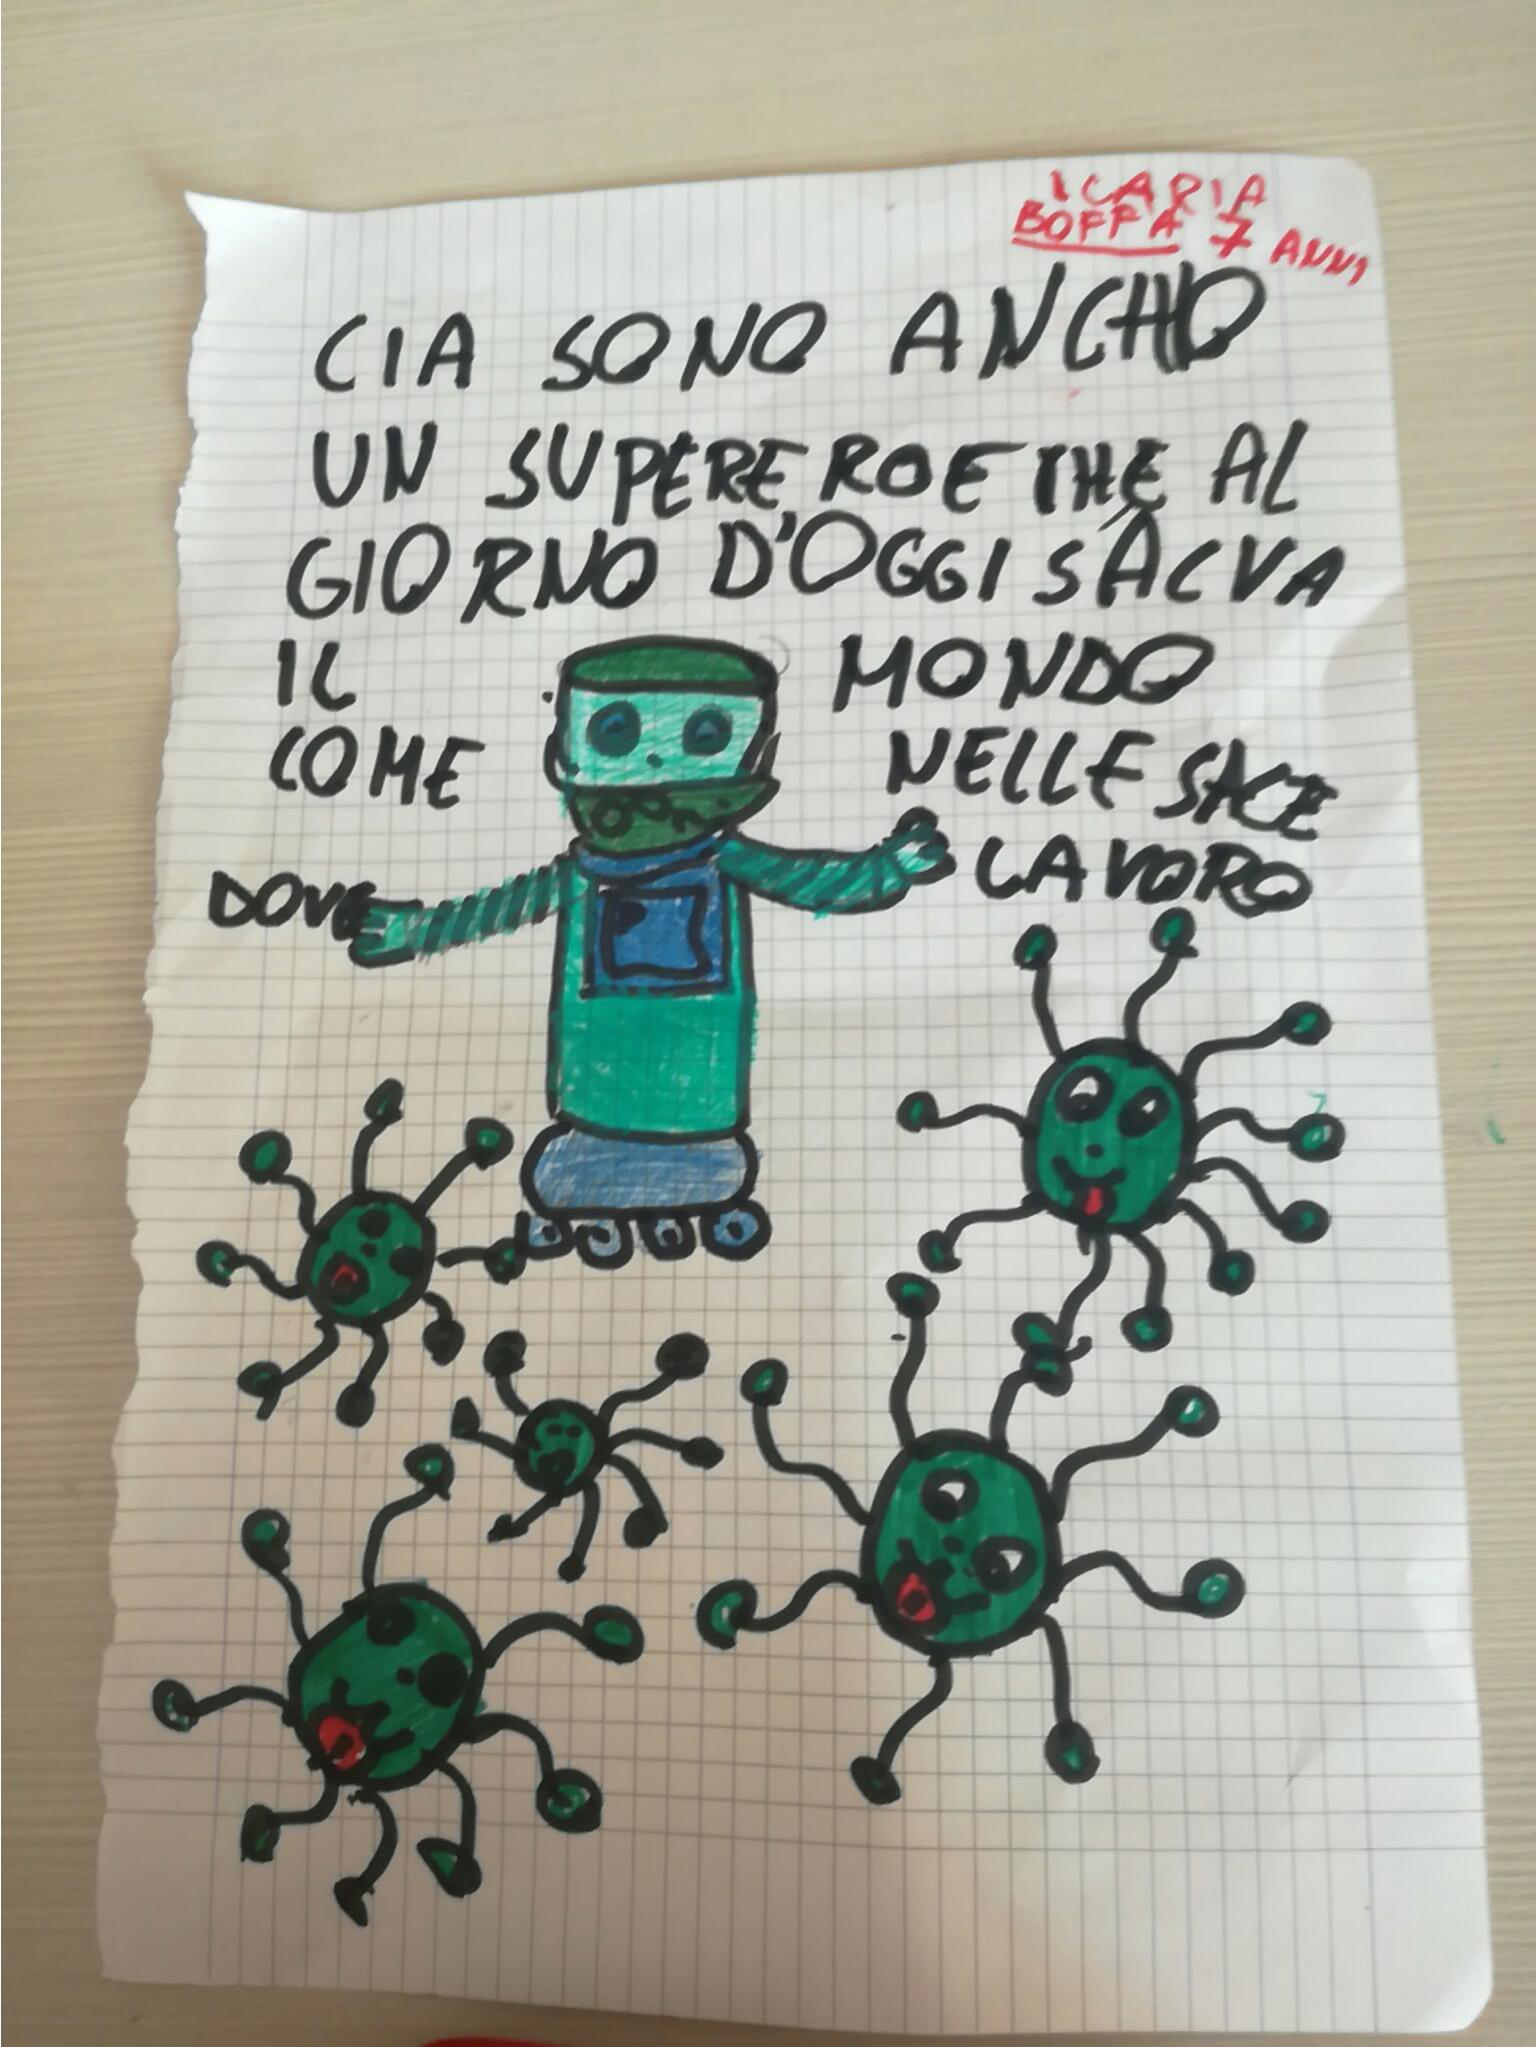 ICARIA
BOFFA 7 ANNI
CIA SONO ANCHO
UN SUPEREROE CHE AL
GIORNO D'OGGI SALVA
IL MONDO
COME NELLE SALE
DOVE LAVORO